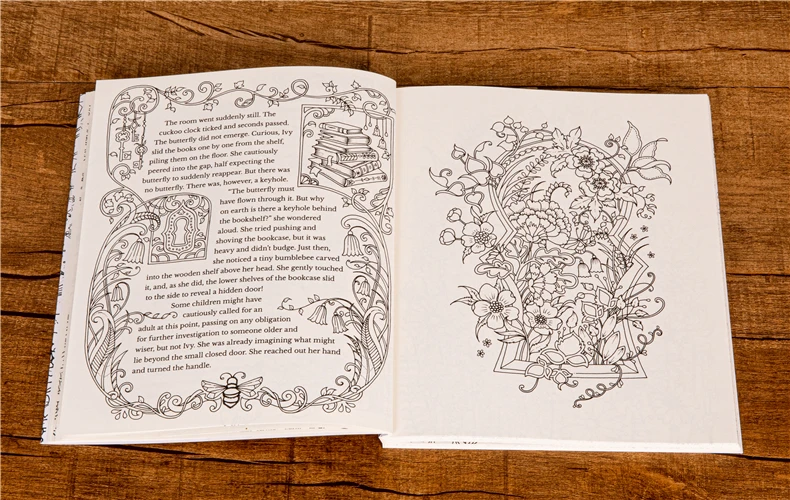 The room went suddenly still. The
cuckoo clock ticked and seconds passed.
The butterfly did not emerge. Curious, Ivy
slid the books one by one from the shelf,
piling them on the floor. She cautiously
peered into the gap, half expecting the
butterfly to suddenly reappear. But there was
no butterfly. There was, however, a keyhole.
"The butterfly must
have flown through it. But why
on earth is there a keyhole behind
the bookshelf?" she wondered
aloud. She tried pushing and
shoving the bookcase, but it was
heavy and didn't budge. Just then,
she noticed a tiny bumblebee carved
into the wooden shelf above her head. She gently touched
it, and, as she did, the lower shelves of the bookcase slid
to the side to reveal a hidden door!
Some children might have
cautiously called for an
adult at this point, passing on any obligation
for further investigation to someone older and
wiser, but not Ivy. She was already imagining what might
lie beyond the small closed door. She reached out her hand
and turned the handle.